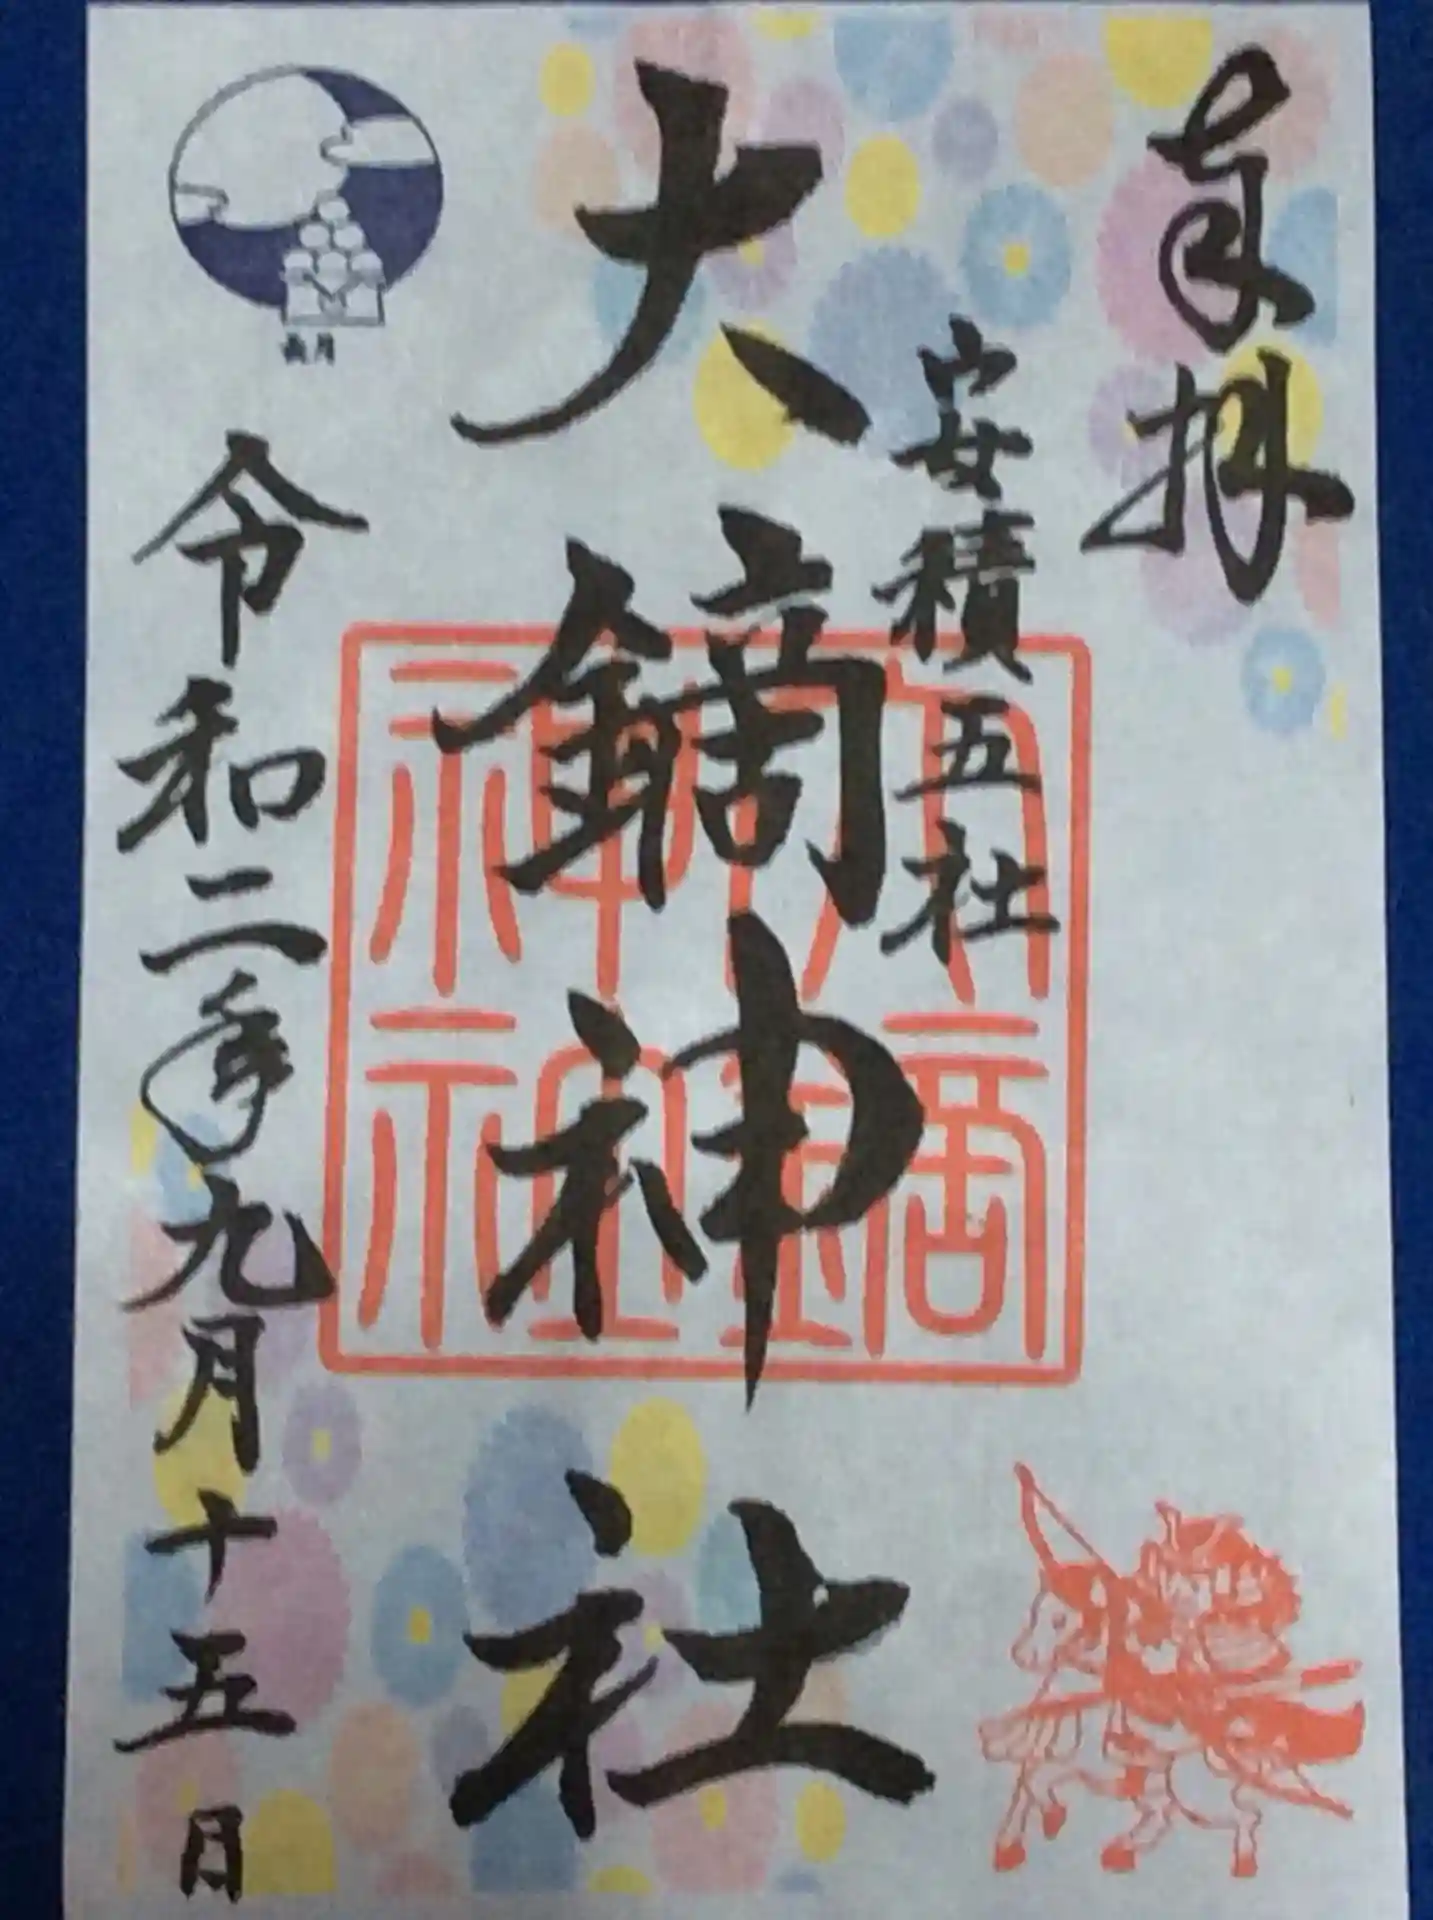 奉拝
安積五社
大鏑神社
大鏑神社
令和二年九月十五日
長月